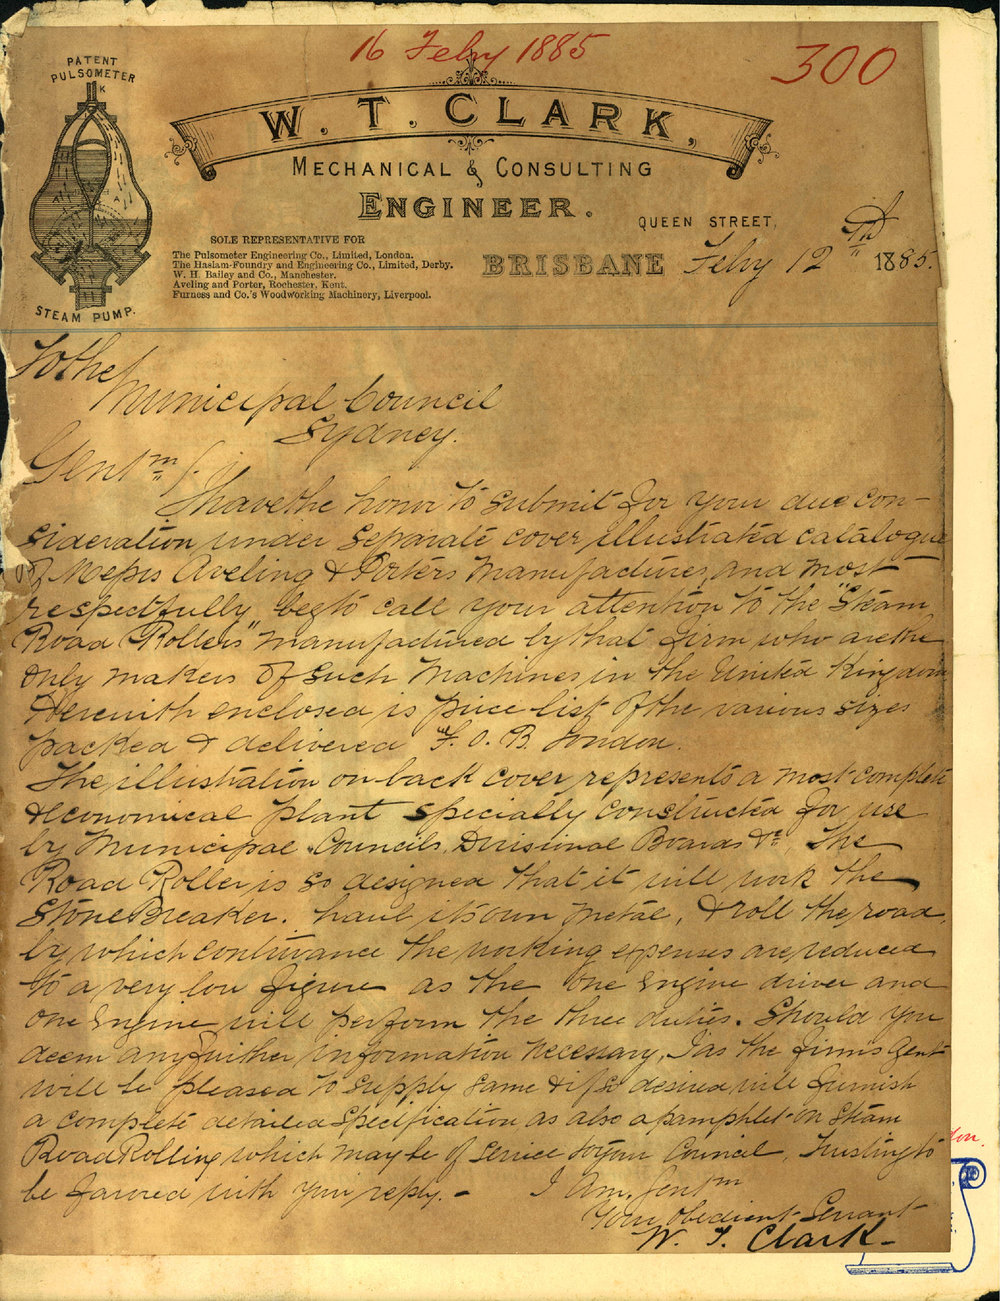 16 Feby 1885
300
PATENT
PULSOMETER
K
STEAM PUMP.
W. T. CLARK,
MECHANICAL & CONSULTING
ENGINEER.
QUEEN STREET,
BRISBANE Feby 12th 1885.
SOLE REPRESENTATIVE FOR
The Pulsometer Engineering Co., Limited, London.
The Haslam-Foundry and Engineering Co., Limited, Derby.
W. H. Bailey and Co., Manchester.
Aveling and Porter, Rochester, Kent.
Furness and Co.'s Woodworking Machinery, Liverpool.
To the
Municipal Council
Sydney.
Gentm /
I have the honor to submit for your due con-
sideration under separate cover illustrated catalogue
of Messrs Aveling & Porters manufactures, and most
respectfully beg to call your attention to the "Steam
Road Rollers" manufactured by that firm who are the
only makers of such Machines in the United Kingdom
Herewith enclosed is price list of the various sizes
packed & delivered F. O. B. London.
The illustration on back cover represents a most complete
& economical plant specially constructed for use
by Municipal Councils, Divisional Boards &c, the
Road Roller is so designed that it will work the
Stone Breaker. haul its own metal, & roll the road,
by which contrivance the working expenses are reduced
to a very low figure as the one Engine driver and
one Engine will perform the three duties. Should you
deem any further information necessary, I as the firms Agent
will be pleased to supply same & if so desired will furnish
a complete detailed specification as also a pamphlet on Steam
Road Rolling which may be of service to your Council, Trusting to
be favored with your reply. -
I Am. Gentm
Your obedient Servant
W. T. Clark -
don.